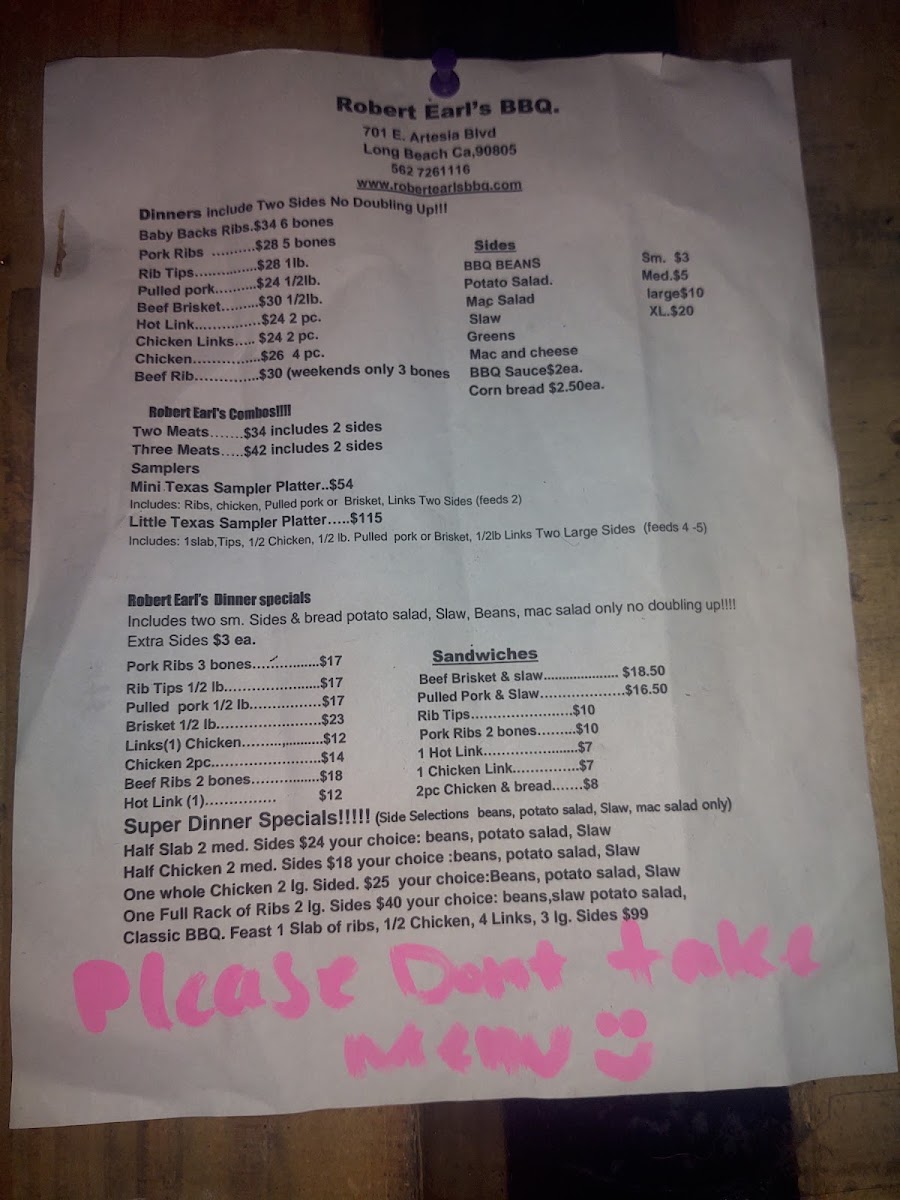 Robert Earl's BBQ.
701 E. Artesia Blvd
Long Beach Ca,90805
562 7261116
www.robertearlsbbq.com
Dinners include Two Sides No Doubling Up!!!
Baby Backs Ribs.$34 6 bones
Pork Ribs ..........$28 5 bones
Rib Tips..............$28 1lb.
Pulled pork.........$24 1/2lb.
Beef Brisket........$30 1/2lb.
Hot Link...............$24 2 pc.
Chicken Links..... $24 2 pc.
Chicken...............$26 4 pc.
Beef Rib..............$30 (weekends only 3 bones
Sides
BBQ BEANS
Potato Salad.
Mac Salad
Slaw
Greens
Mac and cheese
BBQ Sauce$2ea.
Corn bread $2.50ea.
Sm. $3
Med.$5
large$10
XL.$20
Robert Earl's Combos!!!!
Two Meats.......$34 includes 2 sides
Three Meats.....$42 includes 2 sides
Samplers
Mini Texas Sampler Platter..$54
Includes: Ribs, chicken, Pulled pork or Brisket, Links Two Sides (feeds 2)
Little Texas Sampler Platter.....$115
Includes: 1slab,Tips, 1/2 Chicken, 1/2 lb. Pulled pork or Brisket, 1/2lb Links Two Large Sides (feeds 4 -5)
Robert Earl's Dinner specials
Includes two sm. Sides & bread potato salad, Slaw, Beans, mac salad only no doubling up!!!!
Extra Sides $3 ea.
Pork Ribs 3 bones...................$17
Rib Tips 1/2 lb......................$17
Pulled pork 1/2 lb................$17
Brisket 1/2 lb.......................$23
Links(1) Chicken.........,..........$12
Chicken 2pc........................$14
Beef Ribs 2 bones...............$18
Hot Link (1)............... $12
Sandwiches
Beef Brisket & slaw..................... $18.50
Pulled Pork & Slaw...................$16.50
Rib Tips.......................$10
Pork Ribs 2 bones.........$10
1 Hot Link......................$7
1 Chicken Link...............$7
2pc Chicken & bread.......$8
Super Dinner Specials!!!!! (Side Selections beans, potato salad, Slaw, mac salad only)
Half Slab 2 med. Sides $24 your choice: beans, potato salad, Slaw
Half Chicken 2 med. Sides $18 your choice :beans, potato salad, Slaw
One whole Chicken 2 lg. Sided. $25 your choice:Beans, potato salad, Slaw
One Full Rack of Ribs 2 lg. Sides $40 your choice: beans,slaw potato salad,
Classic BBQ. Feast 1 Slab of ribs, 1/2 Chicken, 4 Links, 3 lg. Sides $99
Please Dont take
menu